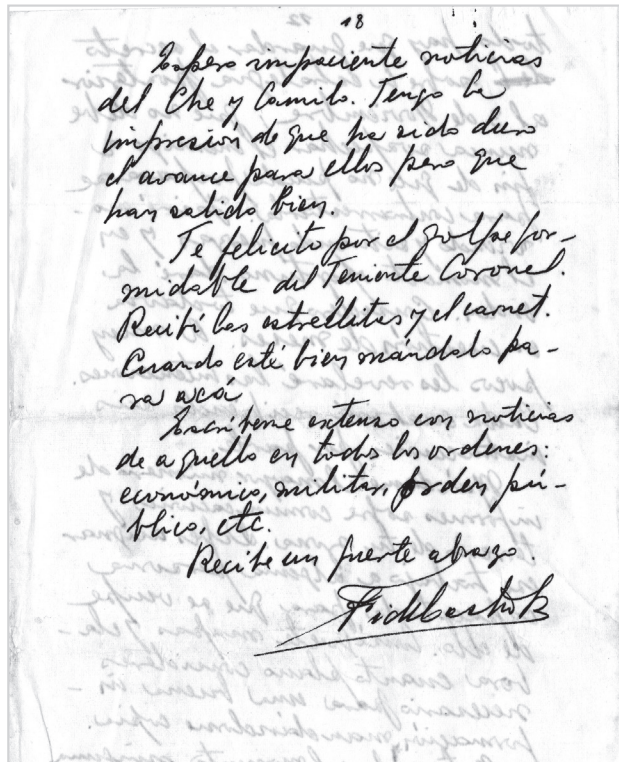 18
Espero impaciente noticias
del Che y Camilo. Tengo la
impresión de que ha sido duro
el avance para ellos pero que
han salido bien.
Te felicito por el golpe for-
midable del Teniente Coronel.
Recibí las estrellitas y el carnet.
Cuando esté bien mándalo pa-
ra acá
Escríbeme extenso con noticias
de aquello en todos los ordenes:
económico, militar, orden pú-
blico, etc.
Recibe un fuerte abrazo.
Fidel Castro R